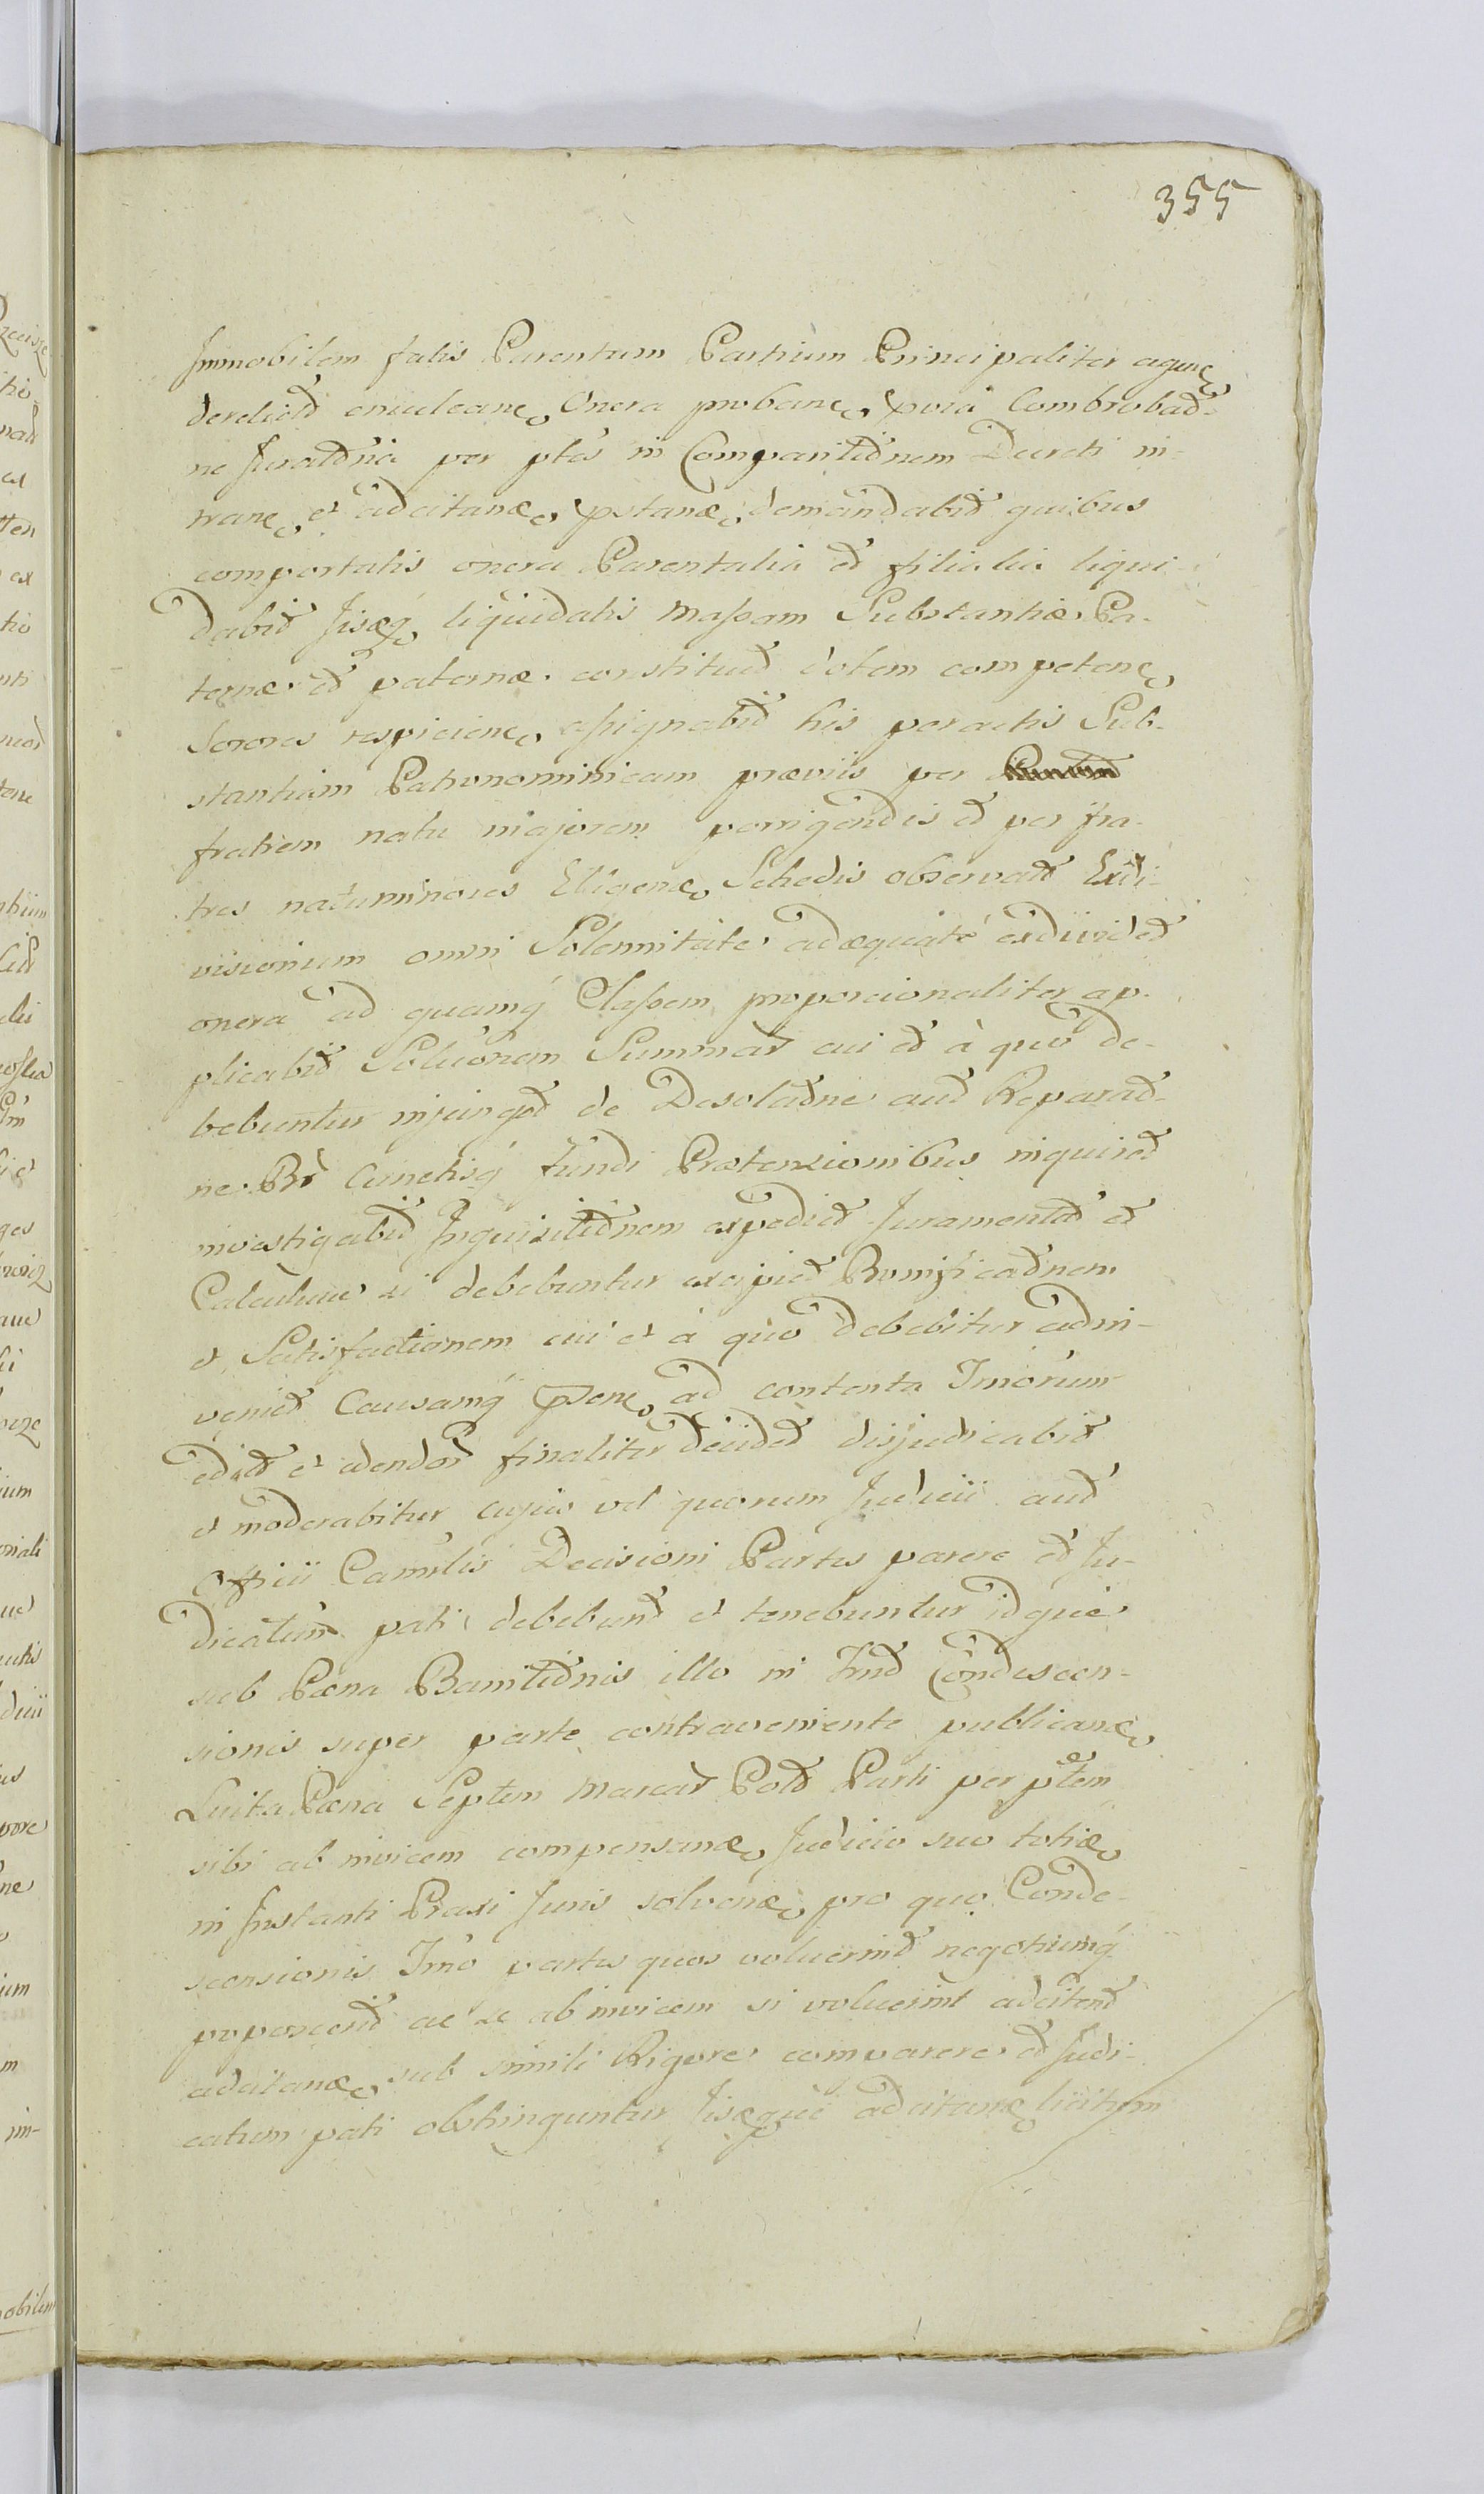 355
Immobilem fatis Parentum Partium Principaliter agen
derelict enucleane Onera probane, pvia Combrobat-
ne Juratoria per ptes in Comparitionem Decreti in-
trane et adcitanae pstanae demandabit quibus
comportatis onera Parentalia et filialia liqui-
dabit Jisq liquidatis Massam Substantiae Pa-
ternae et paternae constituet dotem competene
Sorores respiciene assignabit his peractis Sub-
stantiam Patronominicam praeviis per
fratrem natu majorem porrigendis et per fra-
tres natuminores Elligenae Schedis observatt Exdi-
visionum omni Solennitate adaequate exdividet
onera ad quamq Classem proporcionaliter ap-
plicabit Solutionem Summar cui et à quo de-
bebuntur injunget de Desolatne aut Reparat-
ne Br Cunctisq fundi Praetensionibus inquiret
investigabit Inquisitionem expediet Juramenta et
Calculum si debebuntur excipiet Bonificatnem
et Satisfactionem cui et à quo debebitur adin-
veniet Causamq psene ad contenta Tmorum
edit et edendor finaliter decidet disjudicabit
et moderabitur cujus vel quorum Judicii aut
Officii Camrlis Decisioni Partes parere et Ju-
dicatum pati debebunt et tenebuntur idque
sub Paena Banitionis illo in Tmo Condescen-
sionis super parte contraveniente publicanae
Luita Paena Septem Marcar Pold Parti per ptem
sibi ab invicem compensanae Judicio suo totiae
in Instanti Praxi Juris solvenae pro quo Conde-
scensionis Tmo partes quos voluerint negotiumq
poposcerit ac se ab invicem si voluerint adcitent
adcitanae sub simili Rigore comparere et Judi-
catum pati obstringuntur Jisque adcitanae licitum